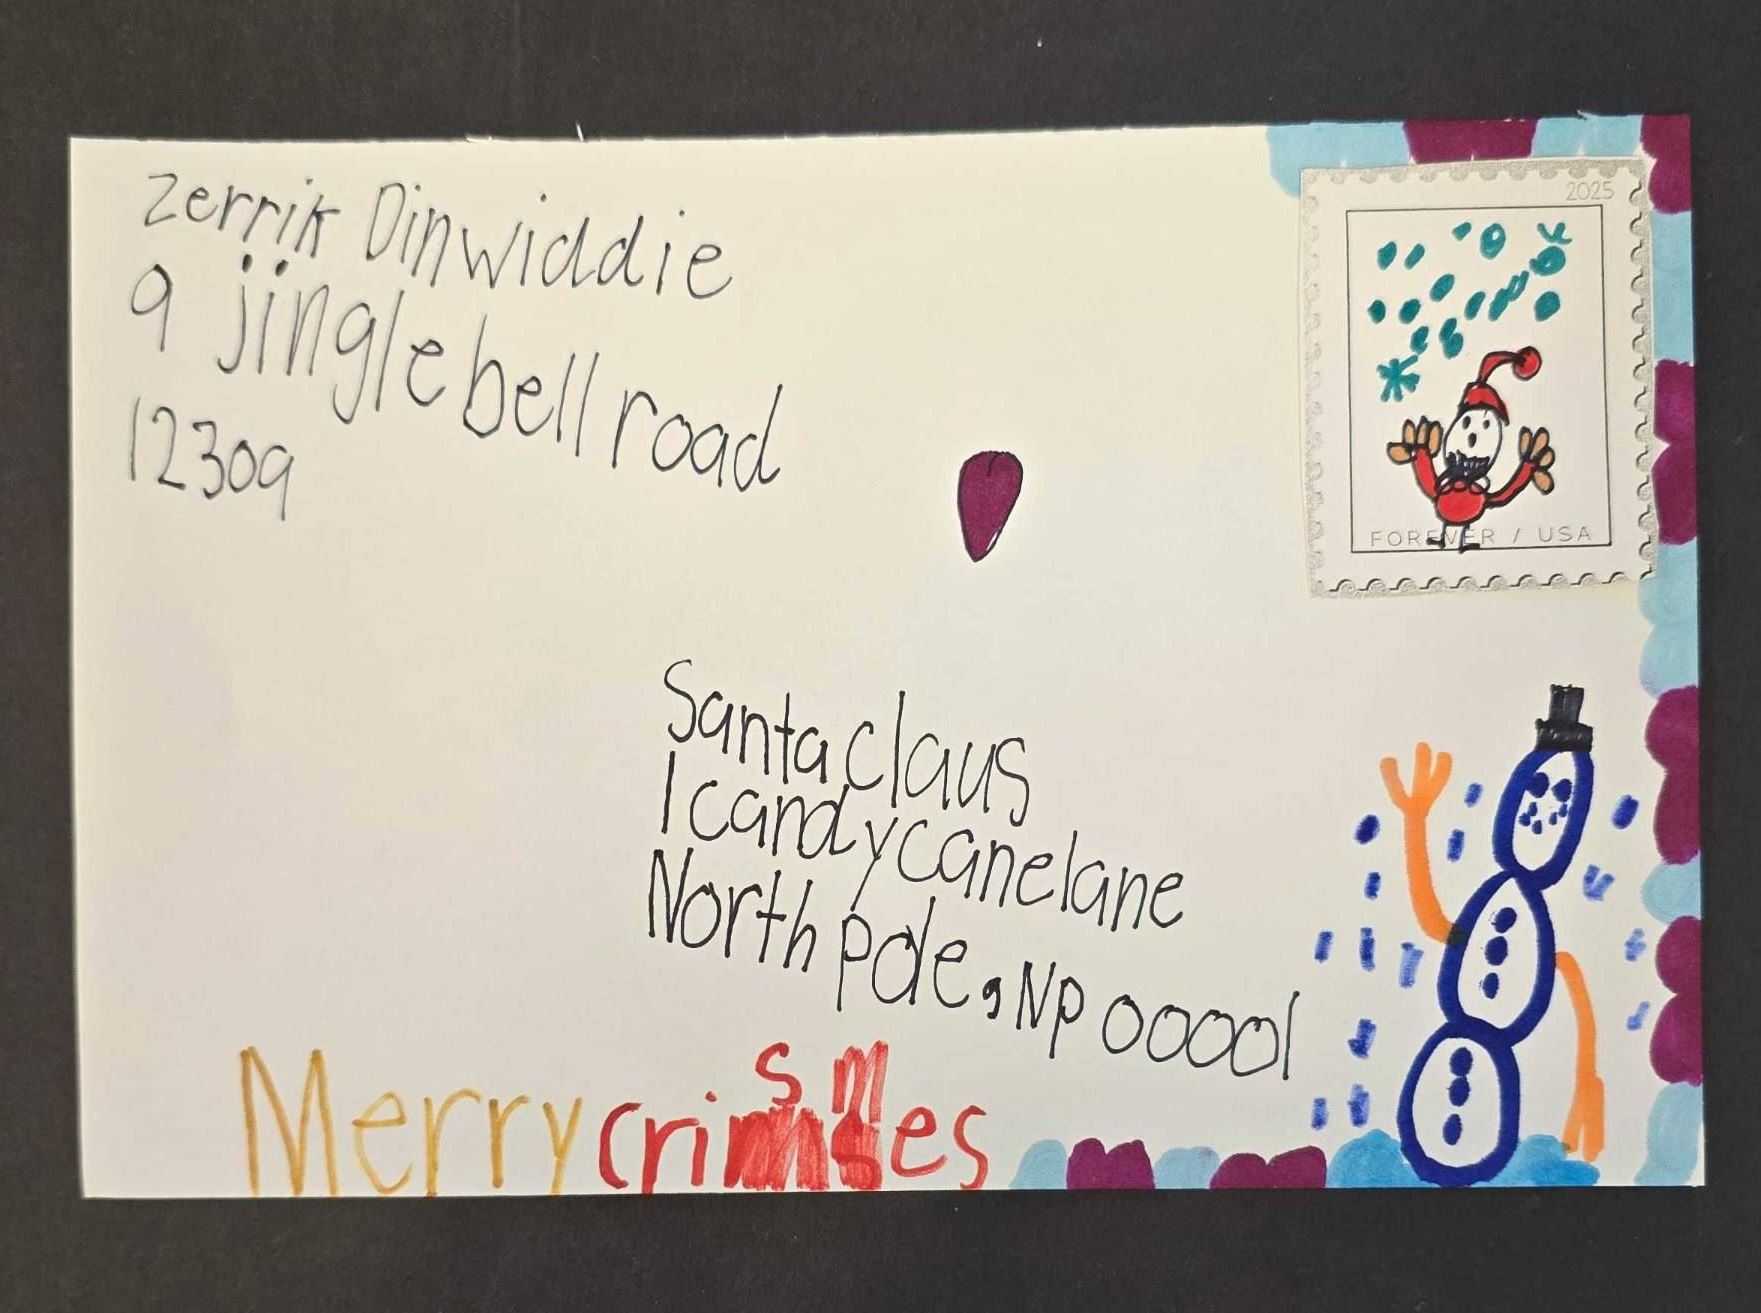 Zerrik Dinwiddie
9 jingle bell road
12309
2025
FOREVER / USA
Santa claus
1 candy cane lane
North pole, NP 00001
Merry crismes